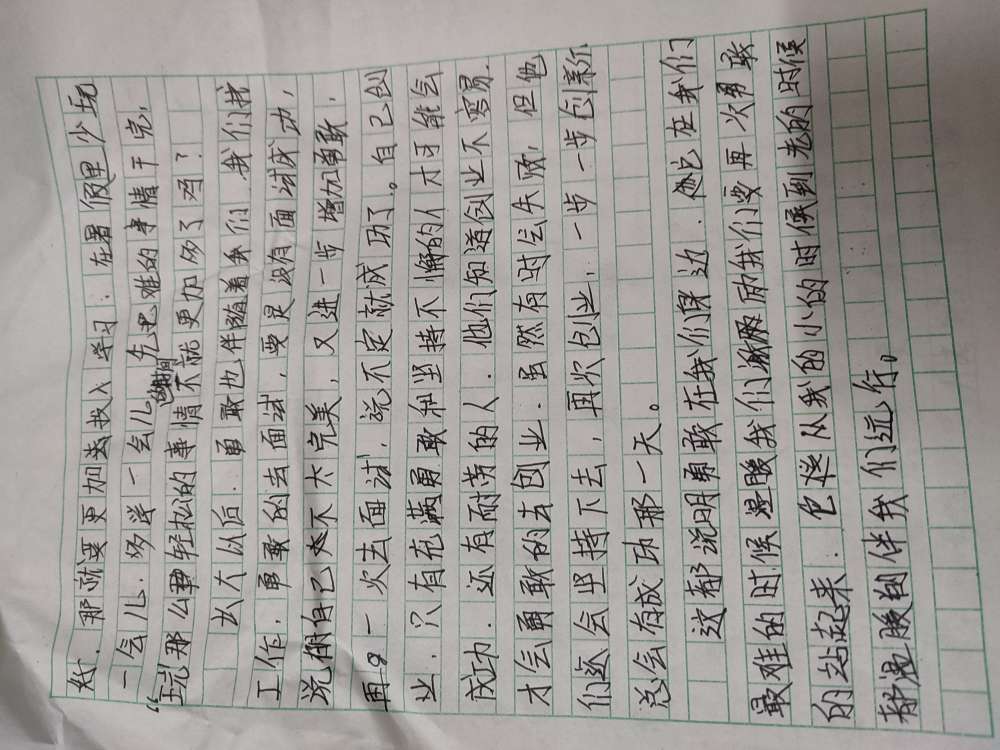 好，那就要更加去投入学习，在暑假里少玩
一会儿，多学一会儿，先把难的事情干完，
玩那么轻松的事情不就更加多了吗？
长大以后，勇敢也伴随着我们，我们找
工作，勇敢的去面试，要是没有面试成功，
说明自己不大完美，又进一步增加勇敢，
再一次去面试，说不定就成功了。自己创
业，只有充满勇敢和坚持不懈的人才能会
成功，还有耐劳的人，他们知道创业不容易，
才会勇敢的去创业，虽然有时会失败，但他
们还会坚持下去，再次创业，一步一步创新，
总会有成功那一天。
这都说明勇敢在我们身边，它在我们
最难的时候温暖我们，激励我们要再次勇敢
的站起来，它从我的小的时候到老的时候
都温暖的伴我们远行。